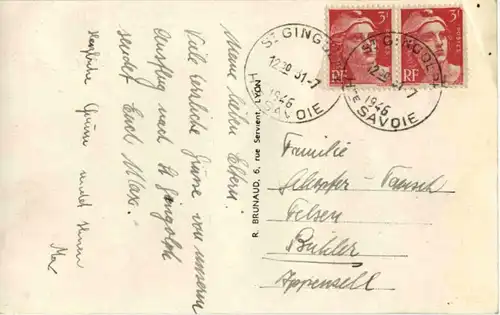 Meine lieben Eltern!
Viele herzliche Grüsse von unserem
Ausflug nach St Gingolph
sendet Euch Max.
Herzliche Grüsse sendet Ihnen
R. BRUNAUD, 6, rue Servient, LYON
3F
RF
3F
RF
ST GINGOLPH
12 30 31-7
1946
HTE SAVOIE
ST GINGOLPH
12 30 31-7
1946
HTE SAVOIE
Familie
Felsen
Bühler
Appenzell